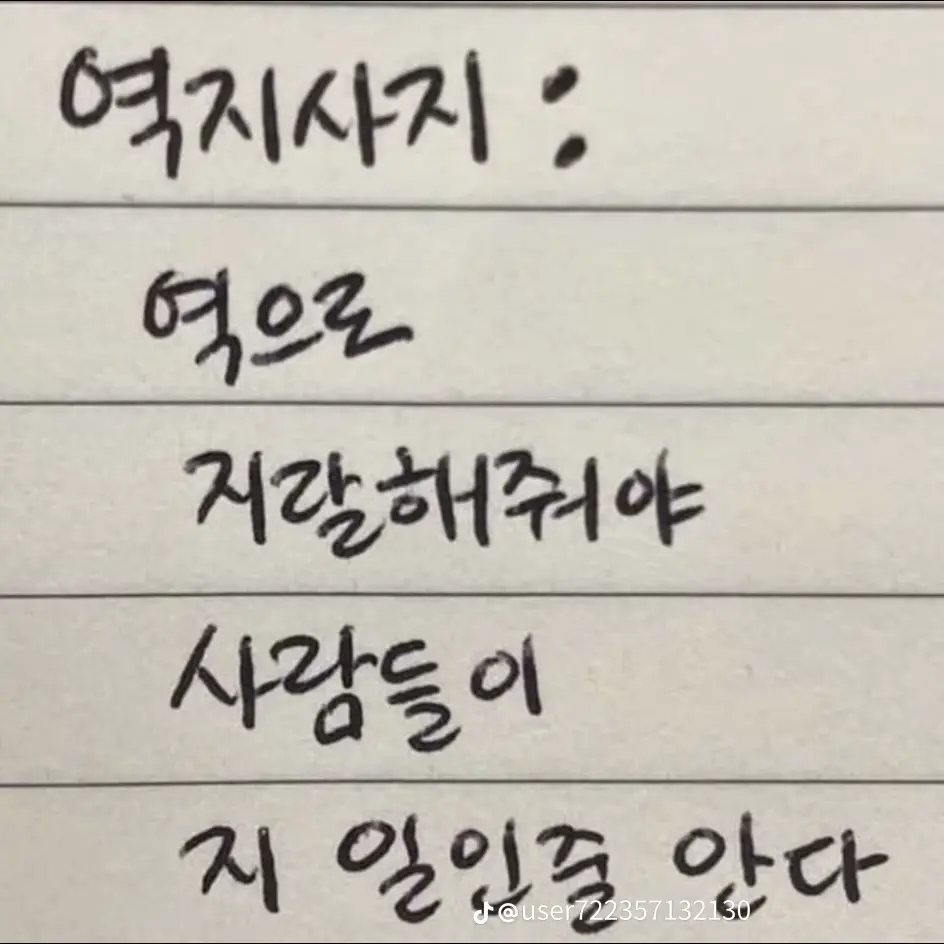 역지사지 :
역으로
지랄해줘야
사람들이
지 일인줄 안다
@user722357132130